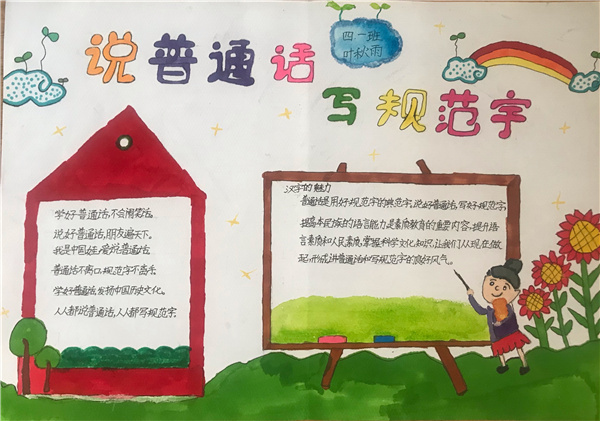 说普通话
四一班
叶秋雨
写规范字
学好普通话,不会闹笑话。
说好普通话,朋友遍天下。
我是中国娃,爱说普通话。
普通话不离口,规范字不离手。
学好普通话,发扬中国历史文化。
人人都说普通话,人人都写规范字。
汉字的魅力
普通话是用好规范字的典范字,说好普通话,写好规范字,
提高本民族的语言能力是素质教育的重要内容,提升语
言素质和人民素质,掌握科学文化知识,让我们从现在做
起,形成讲普通话和写规范字的良好风气。